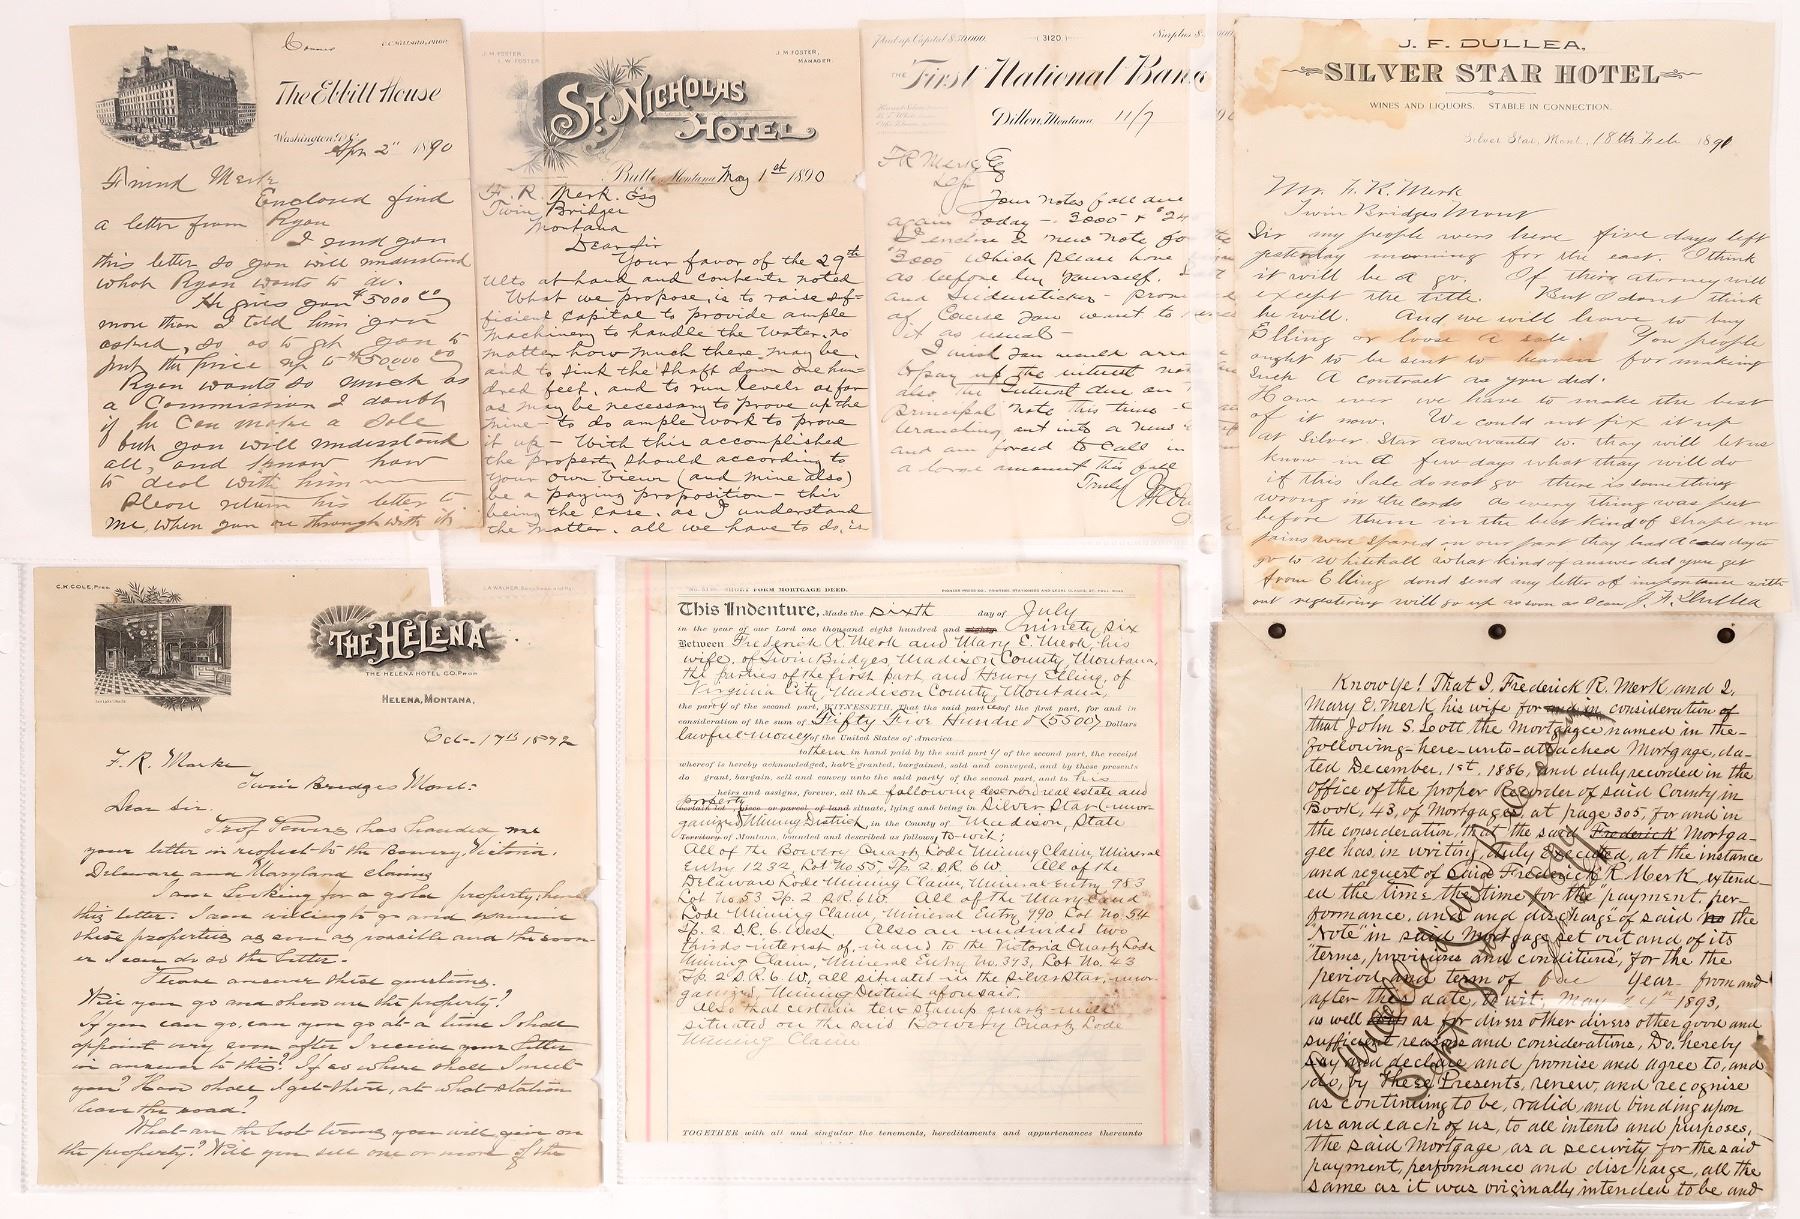 C.C. Willard, Prop.
The Ebbitt House
Washington, D.C.
Apr 2" 1890
Friend Merk
Enclosed find
a letter from Ryan
I send you
this letter so you will understand
what Ryan wants to do.
He gives you $5000 00
more than I told him you
asked, so as to get you to
put the price up to $50000 00
Ryan wants so much as
a Commission I doubt
if he can make a sale
but you will understand
all, and I know how
to deal with him
Please return his letter to
me, when you are through with it
J. M. FOSTER,
E. W. FOSTER
J. M. FOSTER,
MANAGER.
ST. NICHOLAS
HOTEL
Butte, Montana, May 1st 1890
F. R. Merk. Esq
Twin Bridges
Montana
Dear Sir
Your favor of the 29th
ulto at hand and contents noted
What we propose, is to raise suf-
ficient capital to provide ample
machinery to handle the water, no
matter how much there may be.
and to sink the shaft down one hun-
dred feet, and to run levels as far
as may be necessary to prove up the
mine - to do ample work to prove
it up - With this accomplished
the property should according to
your own view (and mine also)
be a paying proposition - this
being the case, as I understand
the matter, all we have to do, is
Paid up Capital $50,000.
(3120)
Surplus $
THE First National Bank
Dillon, Montana 11/7 90
F R Merk Esq
Your notes fall due
again today - 3000 + $24
I enclose a new note for the
3000 which please have
as before by yourself.
and Seidensticker -
of course you want to
it as usual -
I wish you would
to pay up the interest
also the interest due on
principal note this time -
branching out into a new
and am forced to call in
a large amount this fall
Truly
J. F. DULLEA,
SILVER STAR HOTEL
WINES AND LIQUORS. STABLE IN CONNECTION.
Silver Star, Mont. 18th Feb 1891
Mr. F. R. Merk
Twin Bridges Mont
Sir my people were here five days left
yesterday morning for the east. I think
it will be a go. If their attorney will
except the title. But I dont think
he will. And we will have to buy
Elling or loose a sale. You people
ought to be sent to heaven for making
such a contract as you did.
How ever we have to make the best
of it now. We could not fix it up
at Silver Star as we wanted to. they will let us
know in a few days what thay will do
if this sale do not go there is something
wrong in the cards as every thing was put
before them in the best kind of shape no
pains were spared on our part thay had a cold day to
go to Whitehall what kind of answer did you get
from Elling dond send any letter of importance with
out registering will go up as soon as I can J. F. Dullea
C. K. COLE, Pres.
L. A. WALKER, Secy, Treas. and Mgr.
THE HELENA
THE HELENA HOTEL CO. PROP.
HELENA, MONTANA,
Oct - 17th 1892
F. R. Marke
Twin Bridges Mont-
Dear Sir.
Prof Powers has handed me
your letter in respect to the Bowery, Victoria,
Delaware and Maryland claims
I am looking for a gold property, hence
this letter. I am willing to go and examine
these properties as soon as possible and the soon-
er I can do so the better.
Please answer these questions.
Will you go and show me the property?
If you can go, can you go at a time I shall
appoint very soon after I receive your letter
in answer to this? If so where shall I meet
you? How shall I get there, at what station
leave the road?
What are the best terms you will give on
the property? Will you sell one or more of the
SHORT FORM MORTGAGE DEED.
This Indenture, Made the sixth day of July
in the year of our Lord one thousand eight hundred and eighty ninety six
Between Frederick R. Merk and Mary E. Merk, his
wife, of Twin Bridges, Madison County, Montana,
the parties of the first part and Henry Elling, of
Virginia City, Madison County, Montana,
the party of the second part, WITNESSETH, That the said parties of the first part, for and in
consideration of the sum of Fifty Five Hundred (5500) Dollars
lawful money of the United States of America
to them in hand paid by the said party of the second part, the receipt
whereof is hereby acknowledged, have granted, bargained, sold and conveyed, and by these presents
do grant, bargain, sell and convey unto the said party of the second part, and to his
heirs and assigns, forever, all the following described real estate and
property
certain lot piece or parcel of land situate, lying and being in Silver Star (unor-
ganized) Mining District, in the County of Madison, State
Territory of Montana, bounded and described as follows, to-wit:
All of the Bowery Quartz Lode Mining Claim, Mineral
Entry 1232, Lot No 55, Tp. 2 S.R. 6 W. All of the
Delaware Lode Mining Claim, Mineral Entry, 983
Lot No 53 Tp. 2 S.R. 6 W. All of the Maryland
Lode Mining Claim, Mineral Entry, 990 Lot No. 54
Tp. 2. S.R. 6. West. Also an undivided two
thirds interest of, in and to the Victoria Quartz Lode
Mining Claim, Mineral Entry No. 393, Lot No. 43
Tp. 2 S.R. 6. W, all situated in the Silver Star, unor-
ganized, Mining District aforesaid.
Also that certain ten stamp quartz-mill
situated on the said Bowery Quartz Lode
Mining Claim
TOGETHER with all and singular the tenements, hereditaments and appurtenances thereunto
Know Ye! That I, Frederick R. Merk and I,
Mary E. Merk his wife for and in consideration of
that John S. Lott, the Mortgagee named in the-
following-here-unto-attached Mortgage, da-
ted December, 1st, 1886, and duly recorded in the
office of the proper Recorder of said County in
Book, 43, of Mortgages, at page 305, for and in
the consideration, that the said Frederick Mortga-
gee has, in writing, duly executed, at the instance
and request of said Frederick R Merk, extend-
ed the time the time for the "payment, per-
formance, and and discharge of said no the
"Note" in said Mortgage set out and of its
"terms, provisions and conditions, for the the
period and term of one Year from and
after this date, to wit, May 24th 1893,
as well as for divers other divers other good and
sufficient reasons and considerations, Do, hereby
say and declare and promise and agree to, and
do, by These Presents, renew, and recognise
as continuing to be, valid, and binding upon
us and each of us, to all intents and purposes,
the said Mortgage as a security for the said
payment, performance and discharge, all the
same as it was originally intended to be and